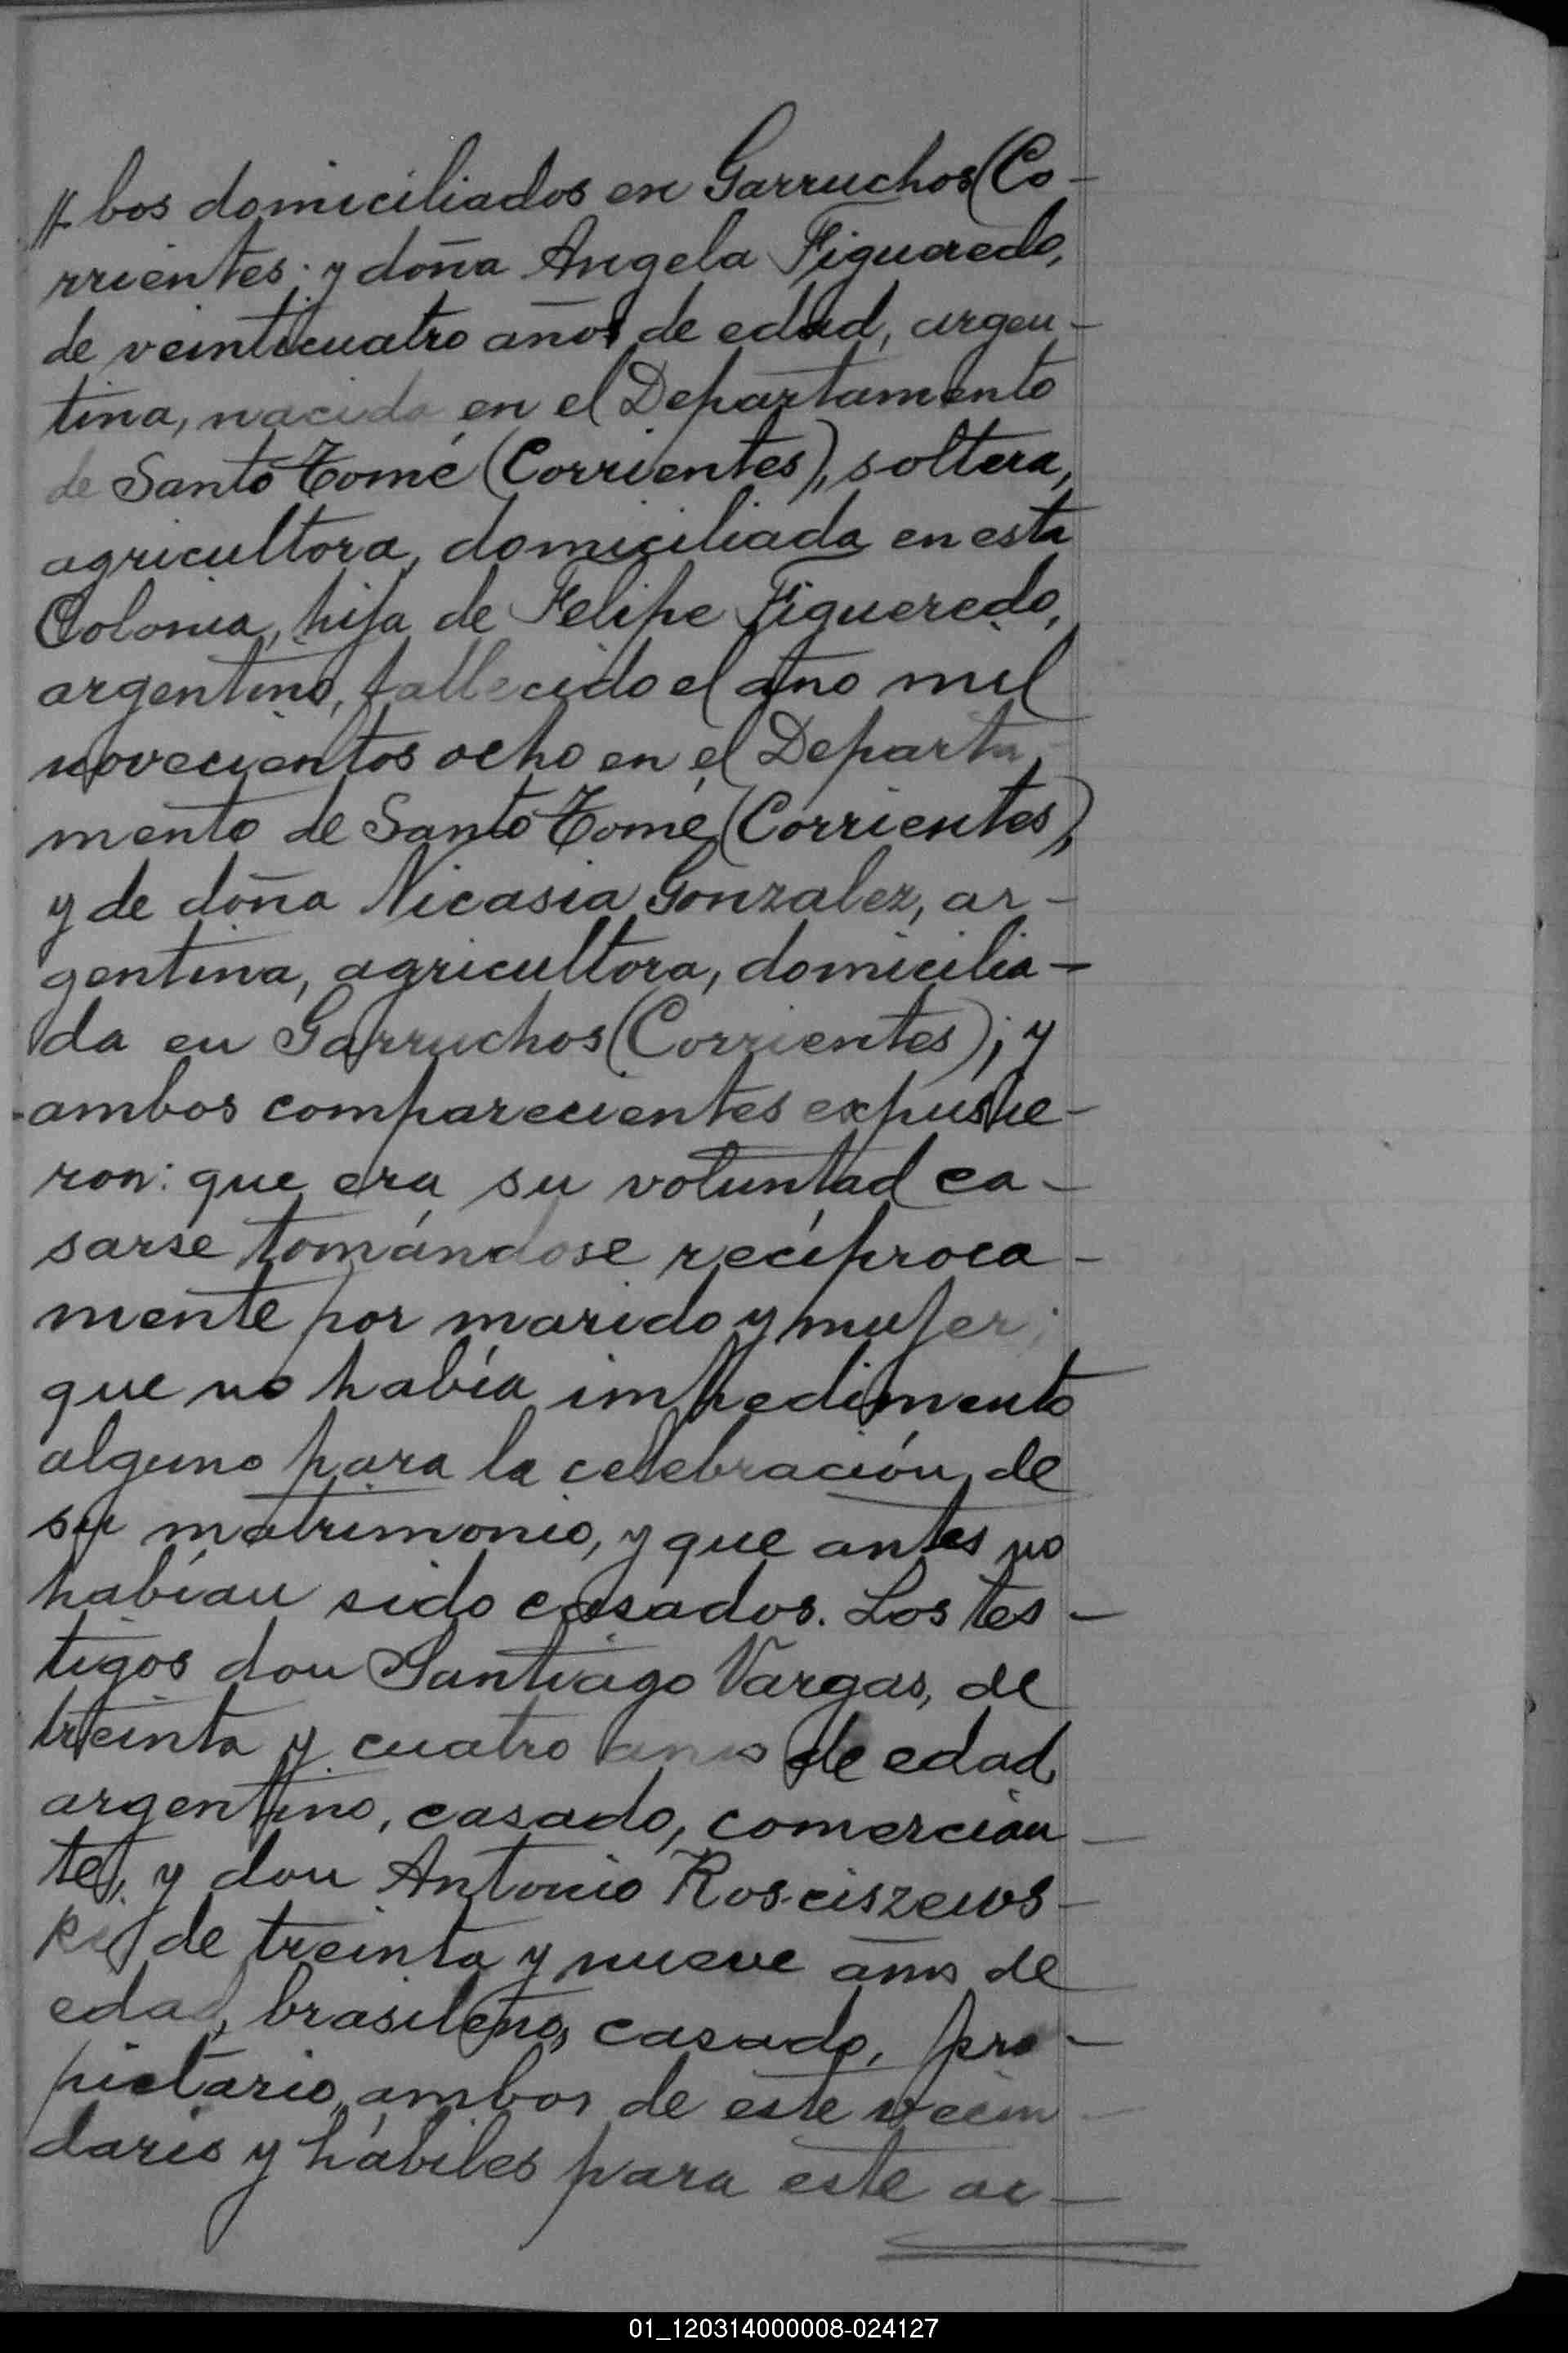 // bos domiciliados en Garruchos (Co-
rrientes; y doña Angela Figueredo,
de veinticuatro años de edad, argen-
tina, nacida en el Departamento
de Santo Tomé (Corrientes), soltera,
agricultora, domiciliada en esta
Colonia, hija de Felipe Figueredo,
argentino, fallecido el año mil
novecientos ocho en el Departa-
mento de Santo Tomé (Corrientes),
y de doña Nicasia Gonzalez, ar-
gentina, agricultora, domicilia-
da en Garruchos (Corrientes); y
ambos comparecientes expusie-
ron: que era su voluntad ca-
sarse tomándose recíproca-
mente por marido y mujer;
que no había impedimento
alguno para la celebración de
su matrimonio, y que antes no
habían sido casados. Los tes-
tigos don Santiago Vargas, de
treinta y cuatro años de edad,
argentino, casado, comercian-
te; y don Antonio Rosciszews-
ki, de treinta y nueve años de
edad, brasileño, casado, pro-
pietario, ambos de este vecin-
dario y hábiles para este ac-
01_120314000008-024127